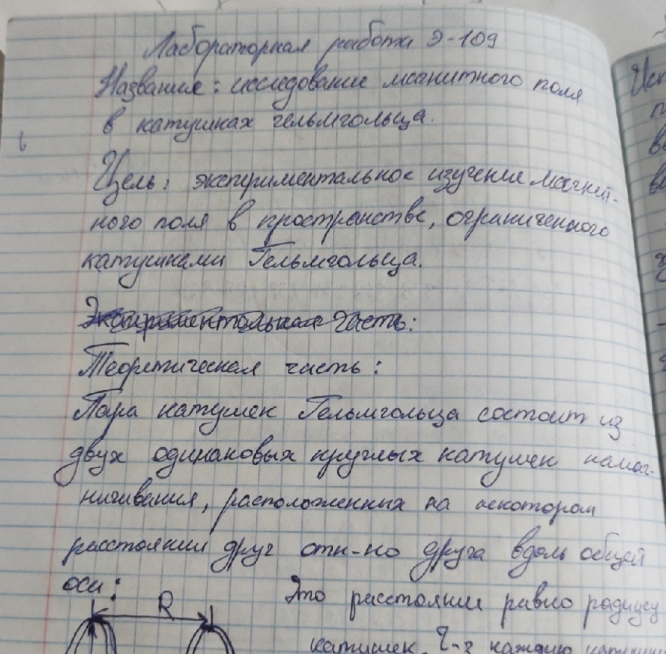 Лабораторная работа Э-109
Название: исследование магнитного поля
в катушках гельмгольца.
Цель: экспериментальное изучение магнит-
ного поля в пространстве, ограниченного
катушками Гельмгольца.
Экспериментальная часть:
Теоретическая часть:
Пара катушек Гельмгольца состоит из
двух одинаковых круглых катушек намаг-
ничивания, расположенных на некотором
расстоянии друг отн-но друга вдоль общей
оси:
R
Это расстояние равно радиусу
катушек. Ч-з каждую